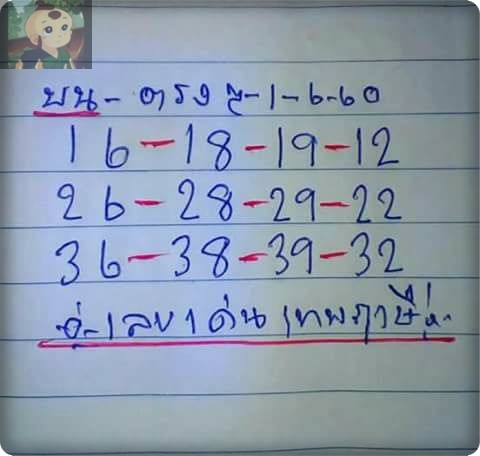 บน - ตรง ล - 1 - 6 - 60
16 - 18 - 19 - 12
26 - 28 - 29 - 22
36 - 38 - 39 - 32
เลขเด่น เทพฤาษี